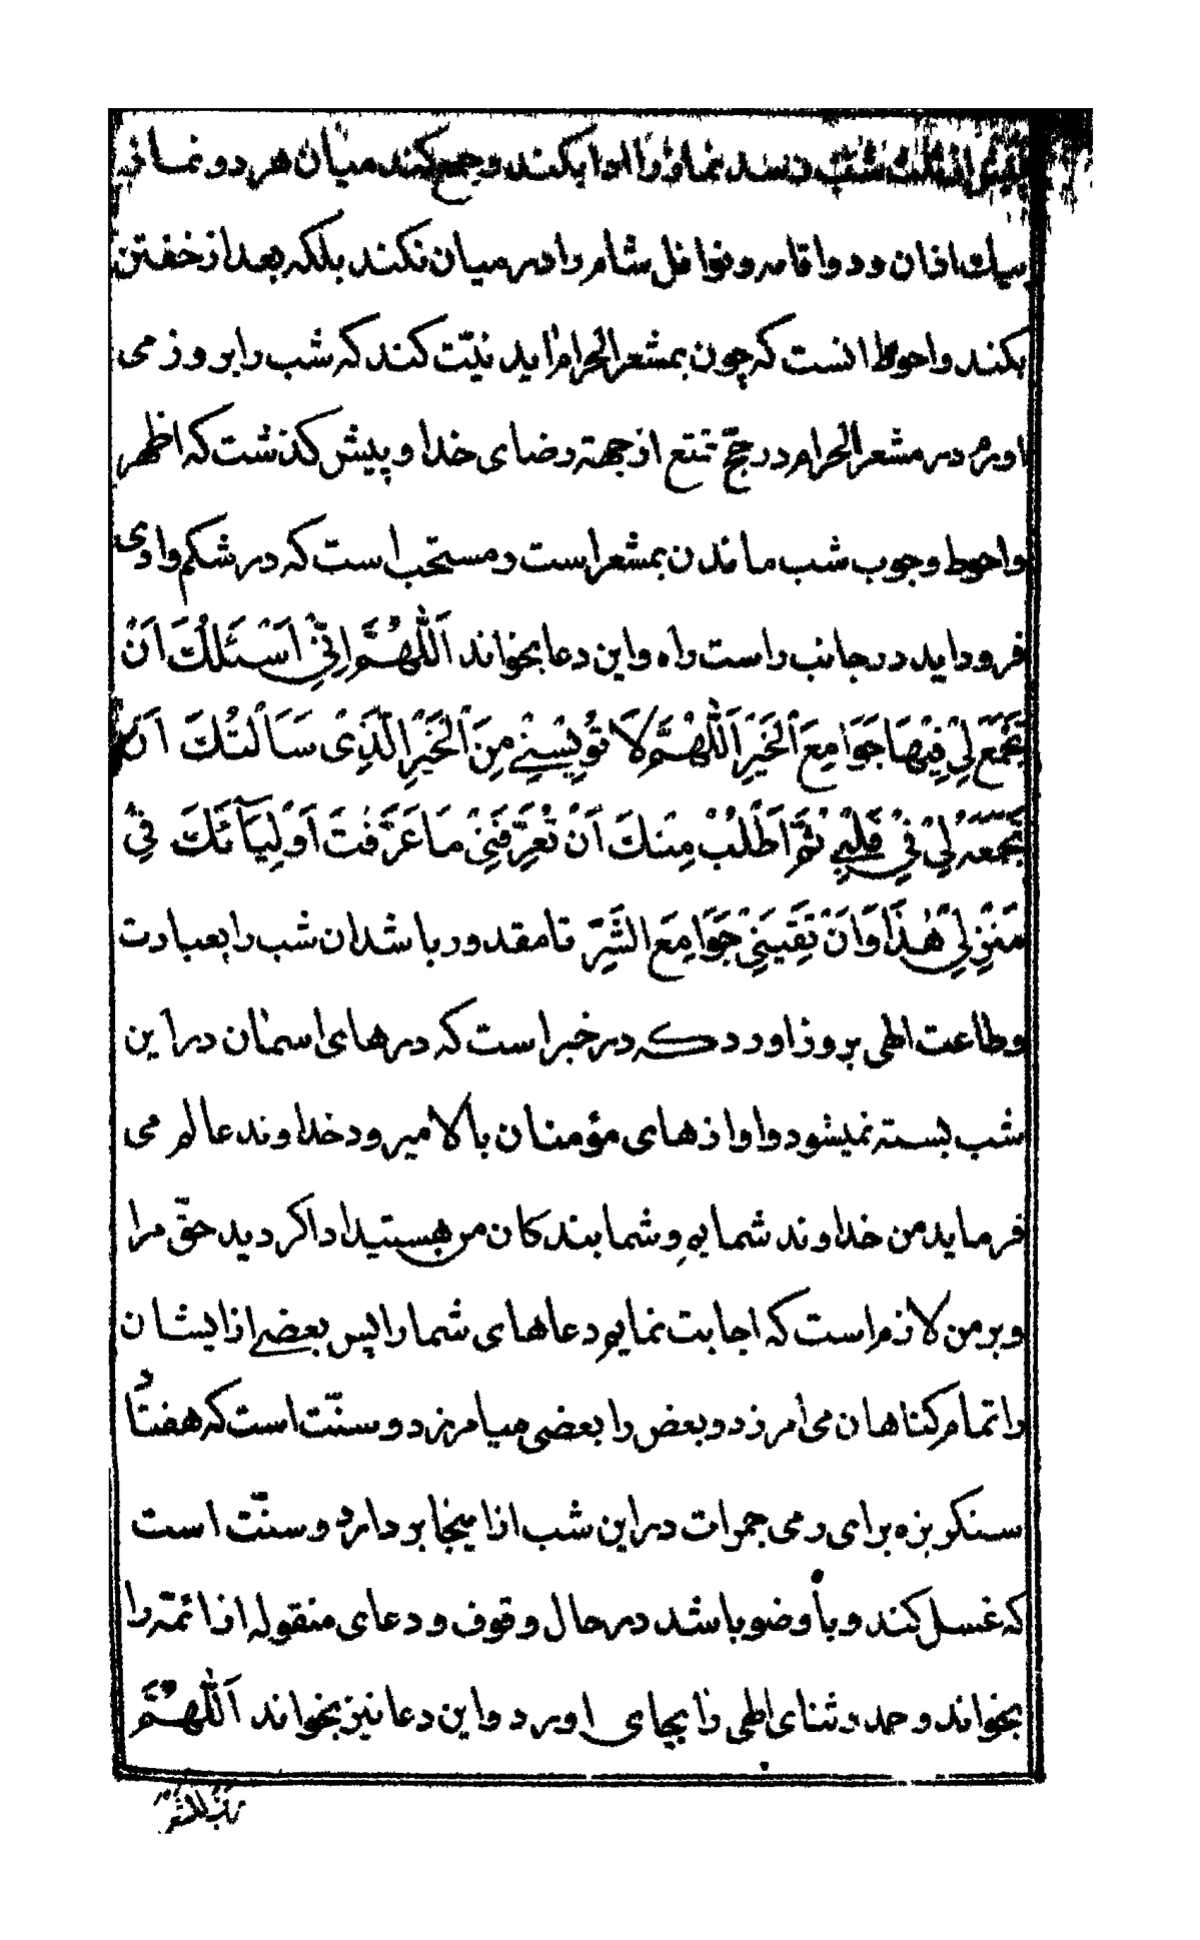 پیش از ثلث شب نرسد نماز را ادا بکند و جمع کند میان هر دو نماز به
یک اذان و دو اقامه و نوافل شام را در میان نکند بلکه بعد از خفتن
بکند و احوط انست که چون بمشعر الحرام اید نیّت کند که شب را بروز می
اورم در مشعر الحرام در حجّ تمتع از جهة رضای خدا و پیش کذشت که اظهر
و احوط وجوب شب ماندن بمشعر است و مستحب است که در شکم وادی
فرود اید در جانب راست راه و این دعا بخواند اَللّٰهُمَّ اِنّیْ اَسْئَلُكَ اَنْ
تَجْمَعَ لِیْ فِیْهَا جَوَامِعَ الْخَیْرِ اَللّٰهُمَّ لَا تُویِسْنِیْ مِنَ الْخَیْرِ الَّذِیْ سَاَلْتُكَ اَنْ
تَجْمَعَهُ لِیْ فِیْ قَلْبِیْ ثُمَّ اَطْلُبُ مِنْكَ اَنْ تُعَرِّفَنِیْ مَا عَرَّفْتَ اَوْلِیَآئَكَ فِیْ
مَنْزِلِیْ هٰذَا وَ اَنْ تَقِیَنِیْ جَوَامِعَ الشَّرِّ تا مقدور باشد ان شب را بعبادت
و طاعت الهی بروز اورد که در خبر است که درهای اسمان در این
شب بسته نمیشود و اوازهای مؤمنان بالا میرود خداوند عالم می
فرماید من خداوند شمایم و شما بندکان من هستید ادا کردید حقّ مرا
و بر من لازم است که اجابت نمایم دعاهای شما را پس بعضے از ایشان
را تمام کناهان می امرزد و بعض را بعضی میامرزد و سنّت است که هفتاد
سنکریزه برای رمی جمرات در این شب از اینجا بردارد و سنّت است
که غسل کند و با وضو باشد در حال وقوف و دعای منقوله از ائمّه را
بخواند و حمد و ثنای الهی را بجای اورد و این دعا نیز بخواند اَللّٰهُمَّ
رَبَّ الْمَشْعَرِ